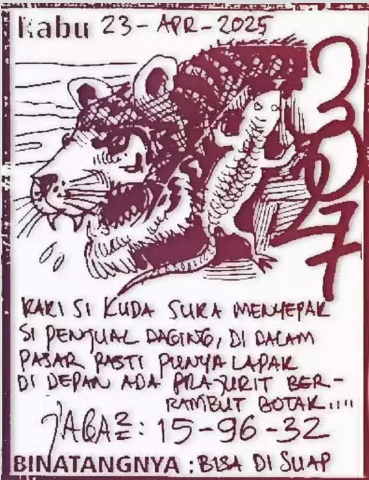 Rabu 23-APR-2025
3027
KAKI SI KUDA SUKA MENYEPAK
SI PENJUAL DAGING, DI DALAM
PASAR PASTI PUNYA LAPAK
DI DEPAN ADA PRAJURIT BER-
RAMBUT BOTAK....
JAGA2: 15-96-32
BINATANGNYA : BISA DI SUAP